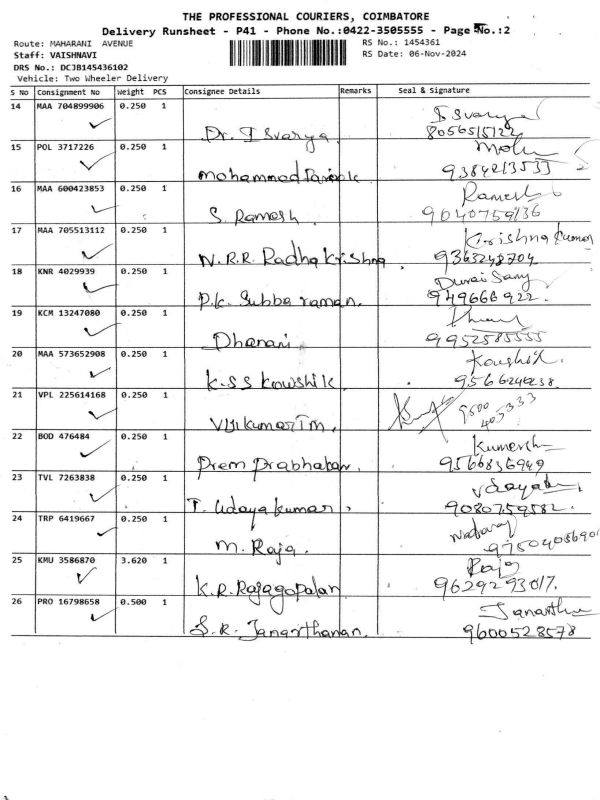 THE PROFESSIONAL COURIERS, COIMBATORE
Delivery Runsheet - P41 - Phone No.:0422-3505555 - Page No.:2
Route: MAHARANI AVENUE RS No.: 1454361
Staff: VAISHNAVI RS Date: 06-Nov-2024
DRS No.: DCJB145436102
Vehicle: Two Wheeler Delivery
S No Consignment No Weight PCS Consignee Details Remarks Seal & Signature
14 MAA 704899906 0.250 1 Dr. Isvarya Isvarya
15 POL 3717226 0.250 1 Mohammed 9384213533
16 MAA 600423853 0.250 1 S. Ramesh. Ramesh 9040759136
17 MAA 705513112 0.250 1 N.R.R. Radha Krishna. Krishna Kumar 9363248704
18 KNR 4029939 0.250 1 P.K. Subbaraman. 949666922.
19 KCM 13247080 0.250 1 Dhanani 9952585555
20 MAA 573652908 0.250 1 K.S.S Kowshik. Koushik. 9566246238
21 VPL 225614168 0.250 1 9500 403333
22 BOD 476484 0.250 1 Prem Prabhakan. 9566836949
23 TVL 7263838 0.250 1 T. Udaya Kumar. 9080759582.
24 TRP 6419667 0.250 1 M. Raja.
25 KMU 3586870 3.620 1 K.R. Rajagopalan 9629293017.
26 PRO 16798658 0.500 1 S.R. Janarthanan. 9600528578